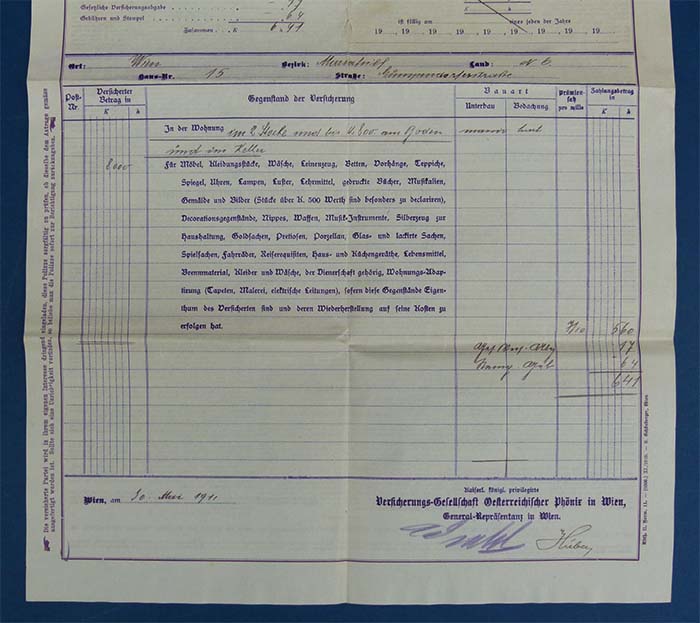 Gesetzliche Versicherungsabgabe 17
Gebühren und Stempel 64
Zusammen . K 6.41
ist fällig am einer jeden der Jahre
19 19 19 19 19 19
Ort: Wien Bezirk: Land: N. Ö.
Haus-Nr. 15 Straße: Gumpendorferstraße
Post-Nr.
Versicherter Betrag in
K h
Gegenstand der Versicherung
Bauart
Unterbau Bedachung
Prämiensatz pro mille
Zahlungsbetrag in
K h
In der Wohnung im 2. Stocke und bis K 800 am Boden
und im Keller
massiv hart
8000
Für Möbel, Kleidungsstücke, Wäsche, Leinenzeug, Betten, Vorhänge, Teppiche,
Spiegel, Uhren, Lampen, Luster, Lehrmittel, gedruckte Bücher, Musikalien,
Gemälde und Bilder (Stücke über K. 500 Werth sind besonders zu declariren),
Decorationsgegenstände, Nippes, Waffen, Musik-Instrumente, Silberzeug zur
Haushaltung, Goldsachen, Pretiosen, Porzellan, Glas- und lackirte Sachen,
Spielsachen, Fahrräder, Reiserequisiten, Haus- und Küchengeräthe, Lebensmittel,
Brennmaterial, Kleider und Wäsche, der Dienerschaft gehörig, Wohnungs-Adap-
tirung (Tapeten, Malerei, elektrische Leitungen), sofern diese Gegenstände Eigen-
thum des Versicherten sind und deren Wiederherstellung auf seine Kosten zu
erfolgen hat.
7/10 5 60
17
64
6 41
Wien, am 30 Mai 1911
Kaiserl. königl. privilegirte
Versicherungs-Gesellschaft Oesterreichischer Phönix in Wien,
General-Repräsentanz in Wien.
Huber
Die versicherte Partei wird in ihrem eigenen Interesse dringend eingeladen, diese Polizze sorgfältig zu prüfen, ob dieselbe dem Antrage gemäss
ausgefertigt worden ist. Sollte sich eine Unrichtigkeit vorfinden, so beliebe man die Polizze sofort zur Berichtigung zurückzugeben.